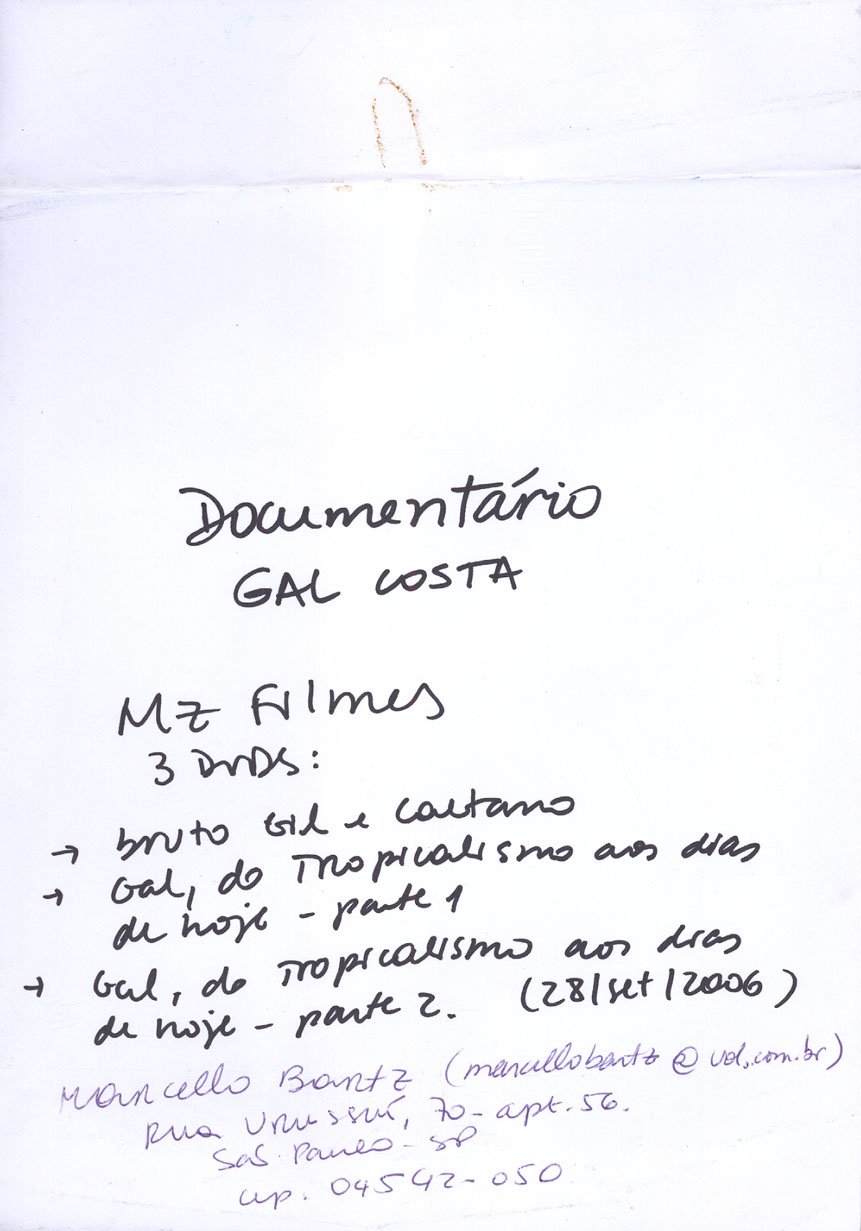 Documentário
GAL COSTA
MZ Filmes
3 DVDS:
→ bruto Gil e Caetano
→ Gal, do Tropicalismo aos dias
de hoje - parte 1
→ Gal, do Tropicalismo aos dias
de hoje - parte 2. (28/set/2006)
Marcello Bartz (marcellobartz@uol.com.br)
Rua Urussuí, 70 - apt. 56.
São Paulo - SP
cep. 04542-050